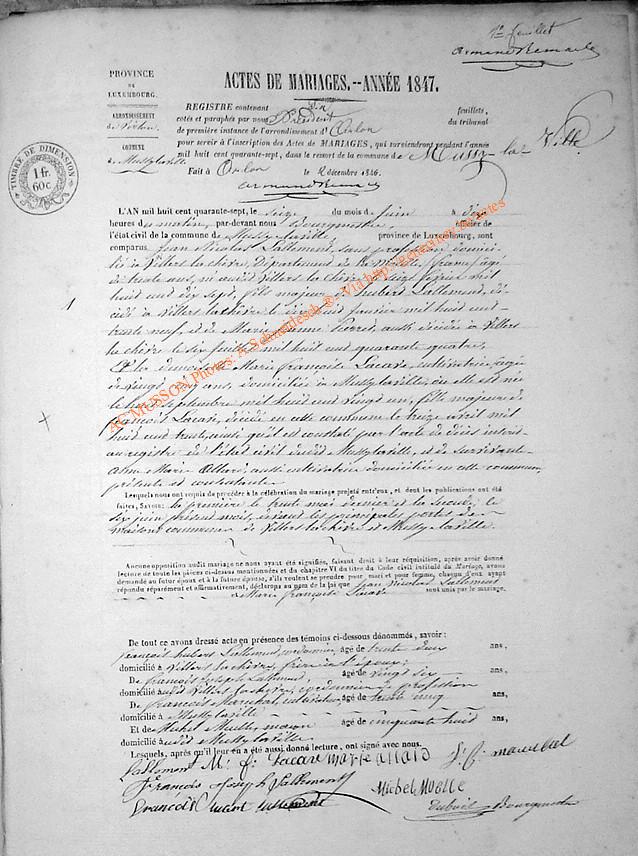 1er feuillet
PROVINCE
DE
LUXEMBOURG.
ARRONDISSEMENT
de Virton
COMMUNE
de Mussy la ville
TIMBRE DE DIMENSION
1 fr.
60 c.
ACTES DE MARIAGES.--ANNÉE 1847.
REGISTRE contenant feuillets,
cotés et paraphés par nous Président du tribunal
de première instance de l'arrondissement d'Arlon
pour servir à l'inscription des Actes de MARIAGES, qui surviendront pendant l'année
mil huit cent quarante-sept, dans le ressort de la commune de Mussy la Ville
Fait à Arlon le 2 décembre 1846.
L'AN mil huit cent quarante-sept, le seize du mois de juin à dix
heures du matin, par-devant nous Bourgmestre officier de
l'état civil de la commune de Mussy la ville province de Luxembourg, sont
comparus Jean Nicolas Lallement, sans profession domici-
lié à Villers la chèvre, Département de la Moselle, france, âgé
de trente ans, né audit Villers la chèvre, le seize février mil
huit cent dix sept, fils majeur de hubert Lallement, dé-
cédé à Villers la chèvre le janvier mil huit cent
trente neuf, et de Marie anne Pierret, aussi décédée à Villers
la chèvre le six juillet mil huit cent quarante quatre.
Et la demoiselle Marie françoise Lacave, cultivatrice, agée
de vingt cinq ans, domiciliée à Mussy la ville, où elle est née
le septembre mil huit cent vingt un, fille majeure de
françois Lacave, décédé en cette commune le treize avril mil
huit cent trente, ainsi qu'il est constaté par l'acte de décès inscrit
au registre de l'état civil dudit Mussy la ville, et de survivante
Marie Allard, aussi cultivatrice domiciliée en cette commune,
présente et consentante
Lesquels nous ont requis de procéder à la célébration du mariage projeté entr'eux, et dont les publications ont été
faites, Savoir: la première le trente mai dernier et la seconde le
six juin présent mois, devant les principales portes des
maisons communes de Villers la chèvre et Mussy la ville.
Aucune opposition audit mariage ne nous ayant été signifiée, faisant droit à leur réquisition, après avoir donné
lecture de toutes les pièces ci-dessus mentionnées et du chapitre VI du titre du Code civil intitulé du Mariage, avons
demandé au futur époux et à la future épouse, s'ils veulent se prendre pour mari et pour femme, chacun d'eux ayant
répondu séparément et affirmativement, déclarons au nom de la loi que Jean Nicolas Lallement
et Marie françoise Lacave sont unis par le mariage.
De tout ce avons dressé acte en présence des témoins ci-dessous dénommés, savoir :
françois hubert Lallement, cordonnier, âgé de trente deux ans,
domicilié à Villers la chèvre, frère de l'époux;
De françois Joseph Lallement, âgé de vingt six ans,
domicilié audit Villers la chèvre, cordonnier de profession
De françois Maréchal, cultivateur âgé de trente cinq ans,
domicilié à Mussy la ville
Et de Michel Muelle, maçon âgé de cinquante huit ans,
domicilié audit Mussy la ville.
Lesquels, après qu'il leur en a été aussi donné lecture, ont signé avec nous.
Lallement M: f: Lacave marie allard
François Joseph Lallement Michel Muelle
françois lallement Bourgmestre
AC MUSSON, Photos: A. Schneidesch ® - Via http: